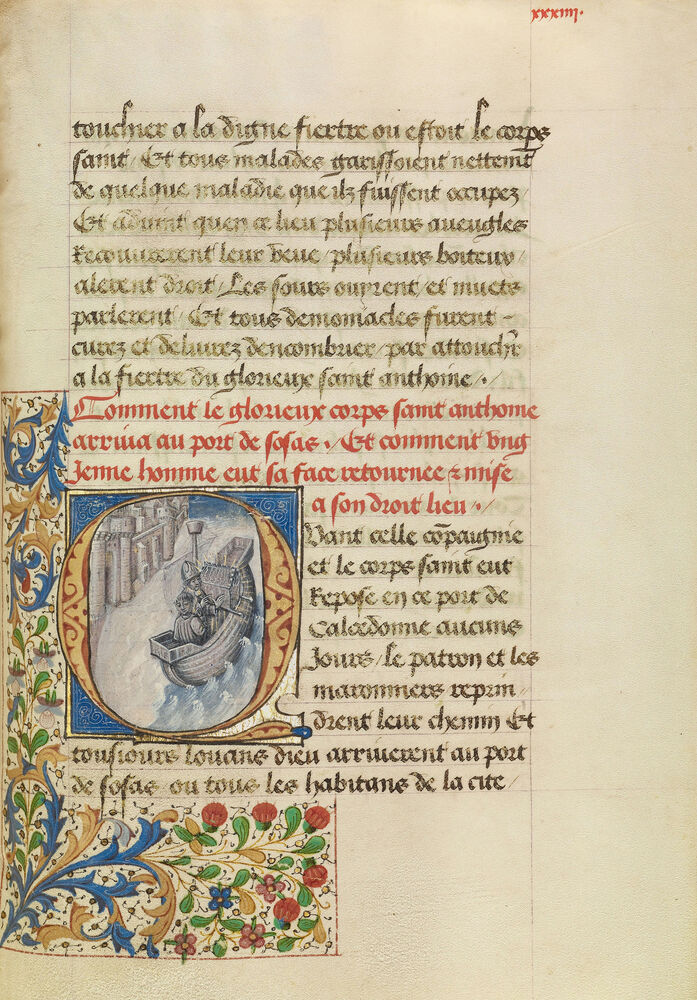 xxxiiij.
touchier a la digne fiertre ou estoit le corps
saint / Et tous malades garissoient nettemt
de quelque maladie que ilz fuissent occupez /
Et aduint quen ce lieu plusieurs aueugles
Recouurerent leur veue / plusieurs boiteux /
alerent droit / Les sours ouyrent / et muets
parlerent / Et tous demoniacles furent -
curez et deliurez dencombrier / par attouchr
a la fiertre du glorieux saint anthoine / .
Comment le glorieux corps saint anthoine
arriua au port de sosas . / Et comment vng
Jenne homme eut sa face retournee & mise
a son droit lieu / .
Quant celle cōpaignie
et le corps saint eut
Repose en ce port de
Calcedonne aucuns
Jours / le patron et les
maronniers reprin /
drent leur chemin Et
tousiours louans dieu arriuerent au port
de sosas ou tous les habitans de la cite /